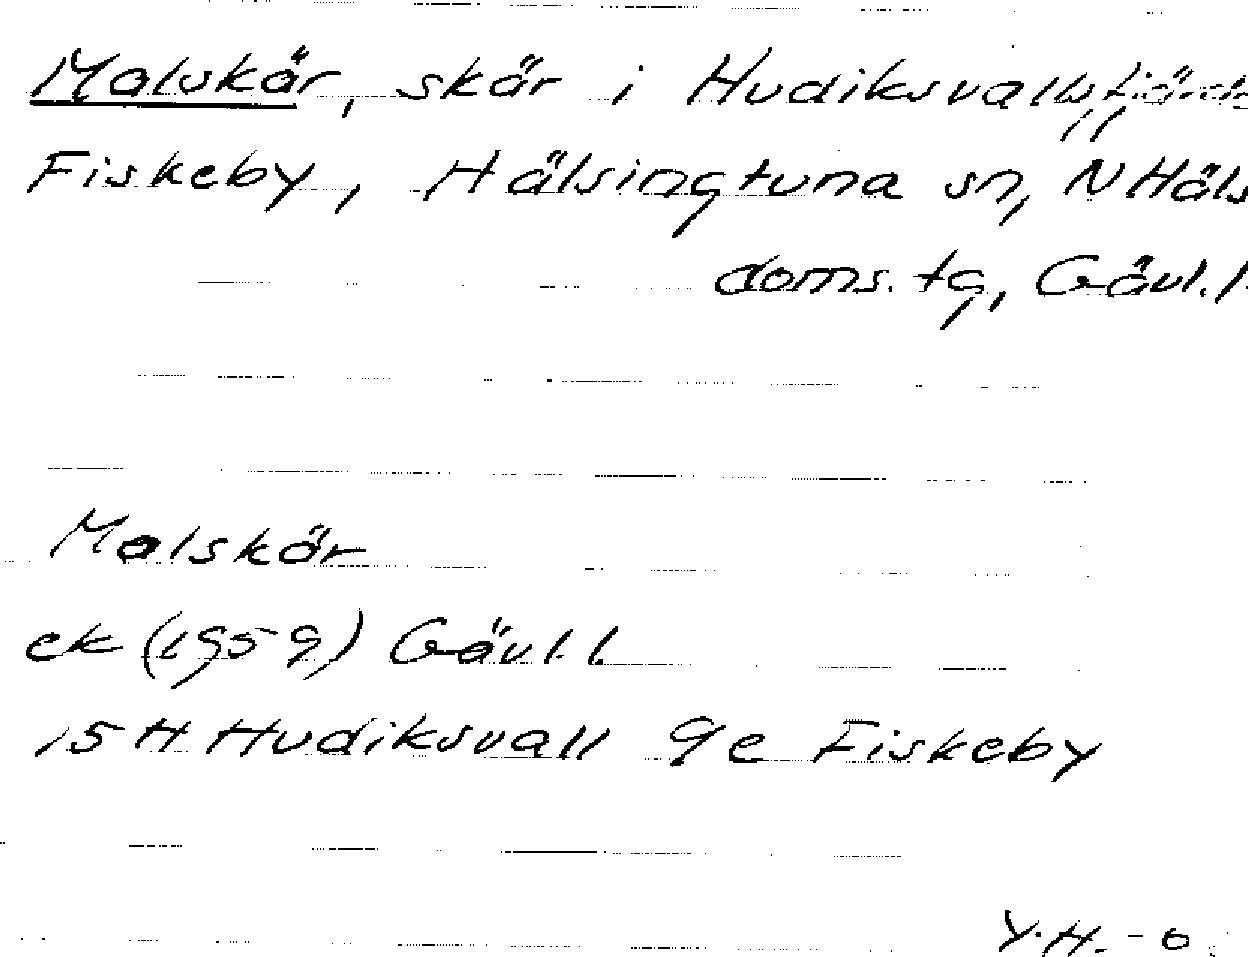 Malskär, skär i Hudiksvalls
Fiskeby, Hälsingtuna sn, N Häls
doms. tg, Gävl. l.
Malskär
ek (1959) Gävl. l.
15 H Hudiksvall 9e Fiskeby
Y.H.-O.